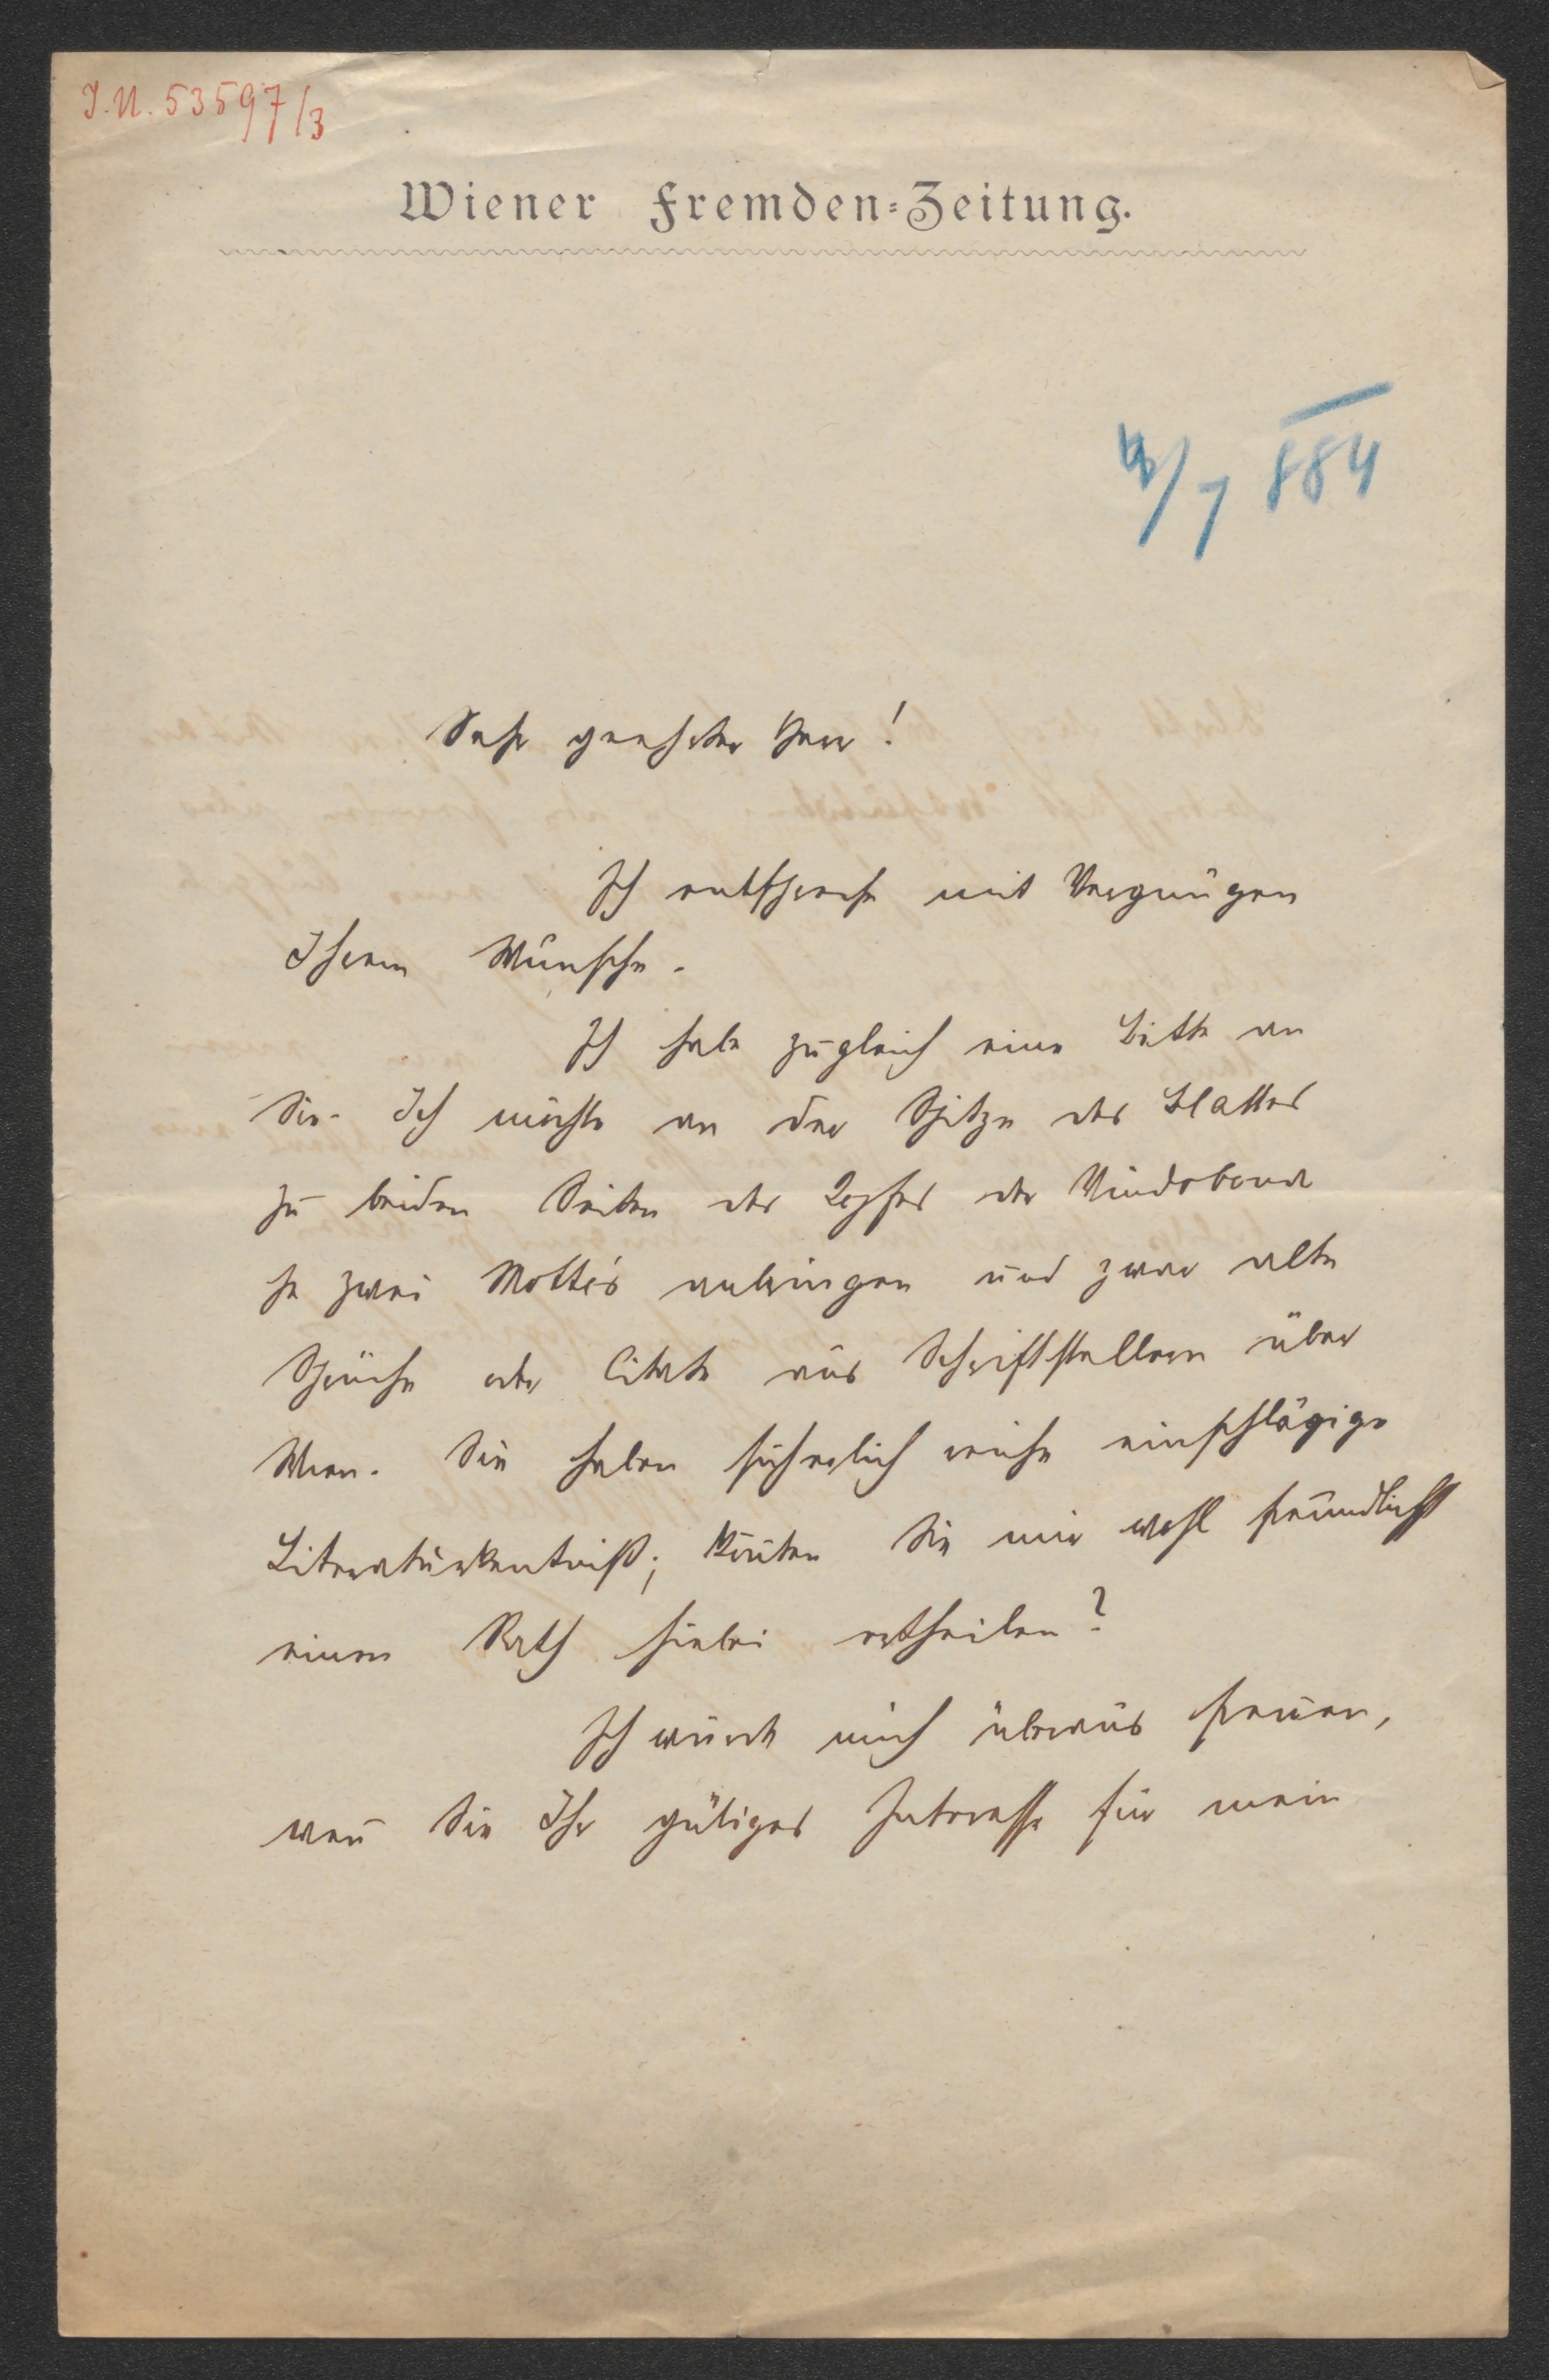 I.N. 53597/3
Wiener Fremden-Zeitung.
/7 884
Sehr geehrter Herr!
Ich entspreche mit Vergnügen
Ihrem Wunsche.
Ich habe zugleich eine Bitte an
Sie. Ich möchte an der Spitze des Blattes
zu beiden Seiten des Kopfes der Vindobona
je zwei Motto's anbringen und zwar alte
Sprüche oder Citate aus Schriftstellern über
Wien. Sie haben sicherlich reiche einschlägige
Literaturkentniß; könten Sie mir wohl freundlichst
einen Rath hiebei ertheilen?
Ich würde mich überaus freuen,
wen̄ Sie Ihr gütiges Interesse für mein